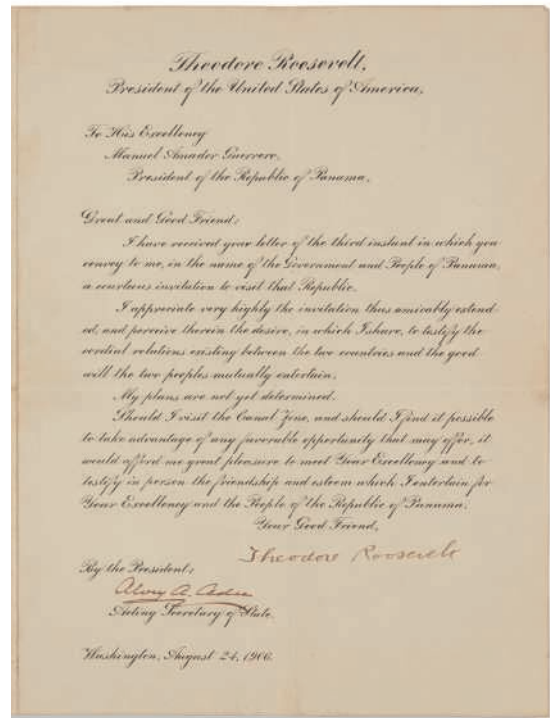 Theodore Roosevelt,
President of the United States of America,
To His Excellency
Manuel Amador Guerrero,
President of the Republic of Panama.
Great and Good Friend:
I have received your letter of the third instant in which you
convey to me, in the name of the Government and People of Panama,
a courteous invitation to visit that Republic.
I appreciate very highly the invitation thus amicably extend-
ed, and perceive therein the desire, in which I share, to testify the
cordial relations existing between the two countries and the good
will the two peoples mutually entertain.
My plans are not yet determined.
Should I visit the Canal Zone, and should I find it possible
to take advantage of any favorable opportunity that may offer, it
would afford me great pleasure to meet Your Excellency and to
testify in person the friendship and esteem which I entertain for
Your Excellency and the People of the Republic of Panama.
Your Good Friend,
Theodore Roosevelt
By the President:
Alvey A. Adee
Acting Secretary of State.
Washington, August 24, 1906.